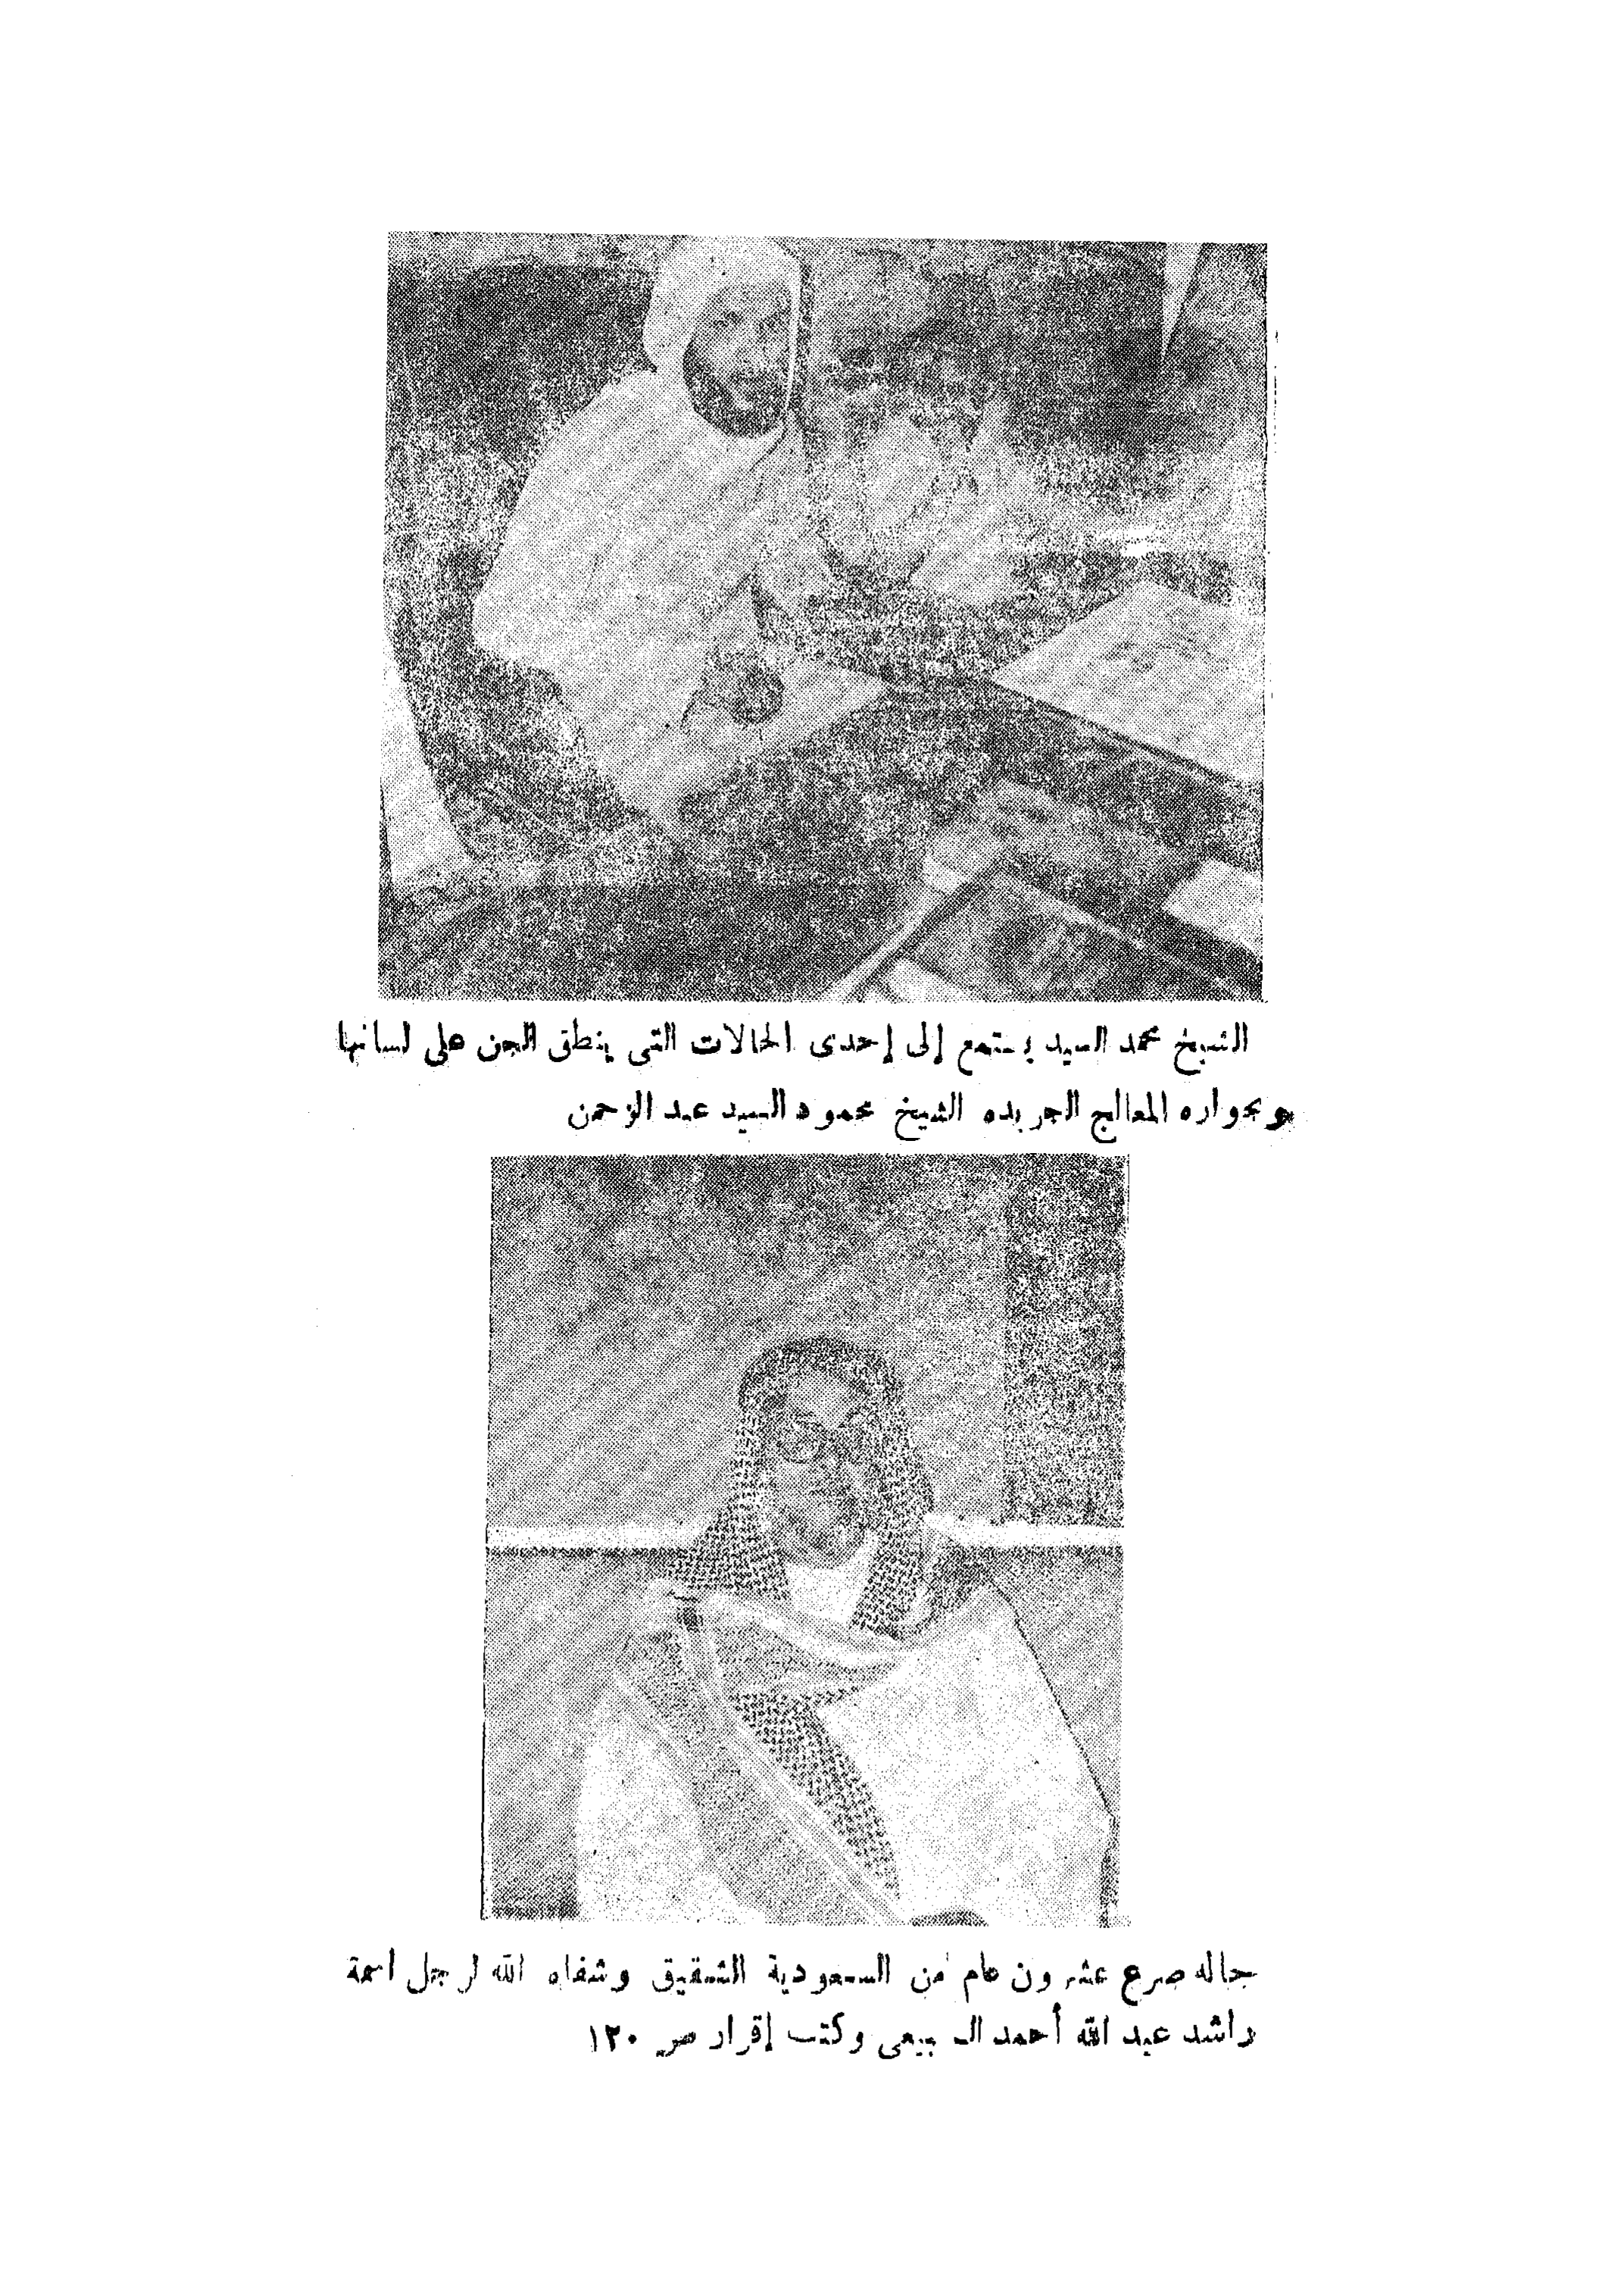 الشيخ محمد السيد يستمع إلى إحدى الحالات التى ينطق الجن على لسانها
وبجواره المعالج الجريده الشيخ محمود السيد عبد الرحمن
حاله صرع عشرون عام من السعودية الشقيق وشفاه الله لرجل اسمة
راشد عبد الله أحمد وكتب إقرار ص ١٢٠